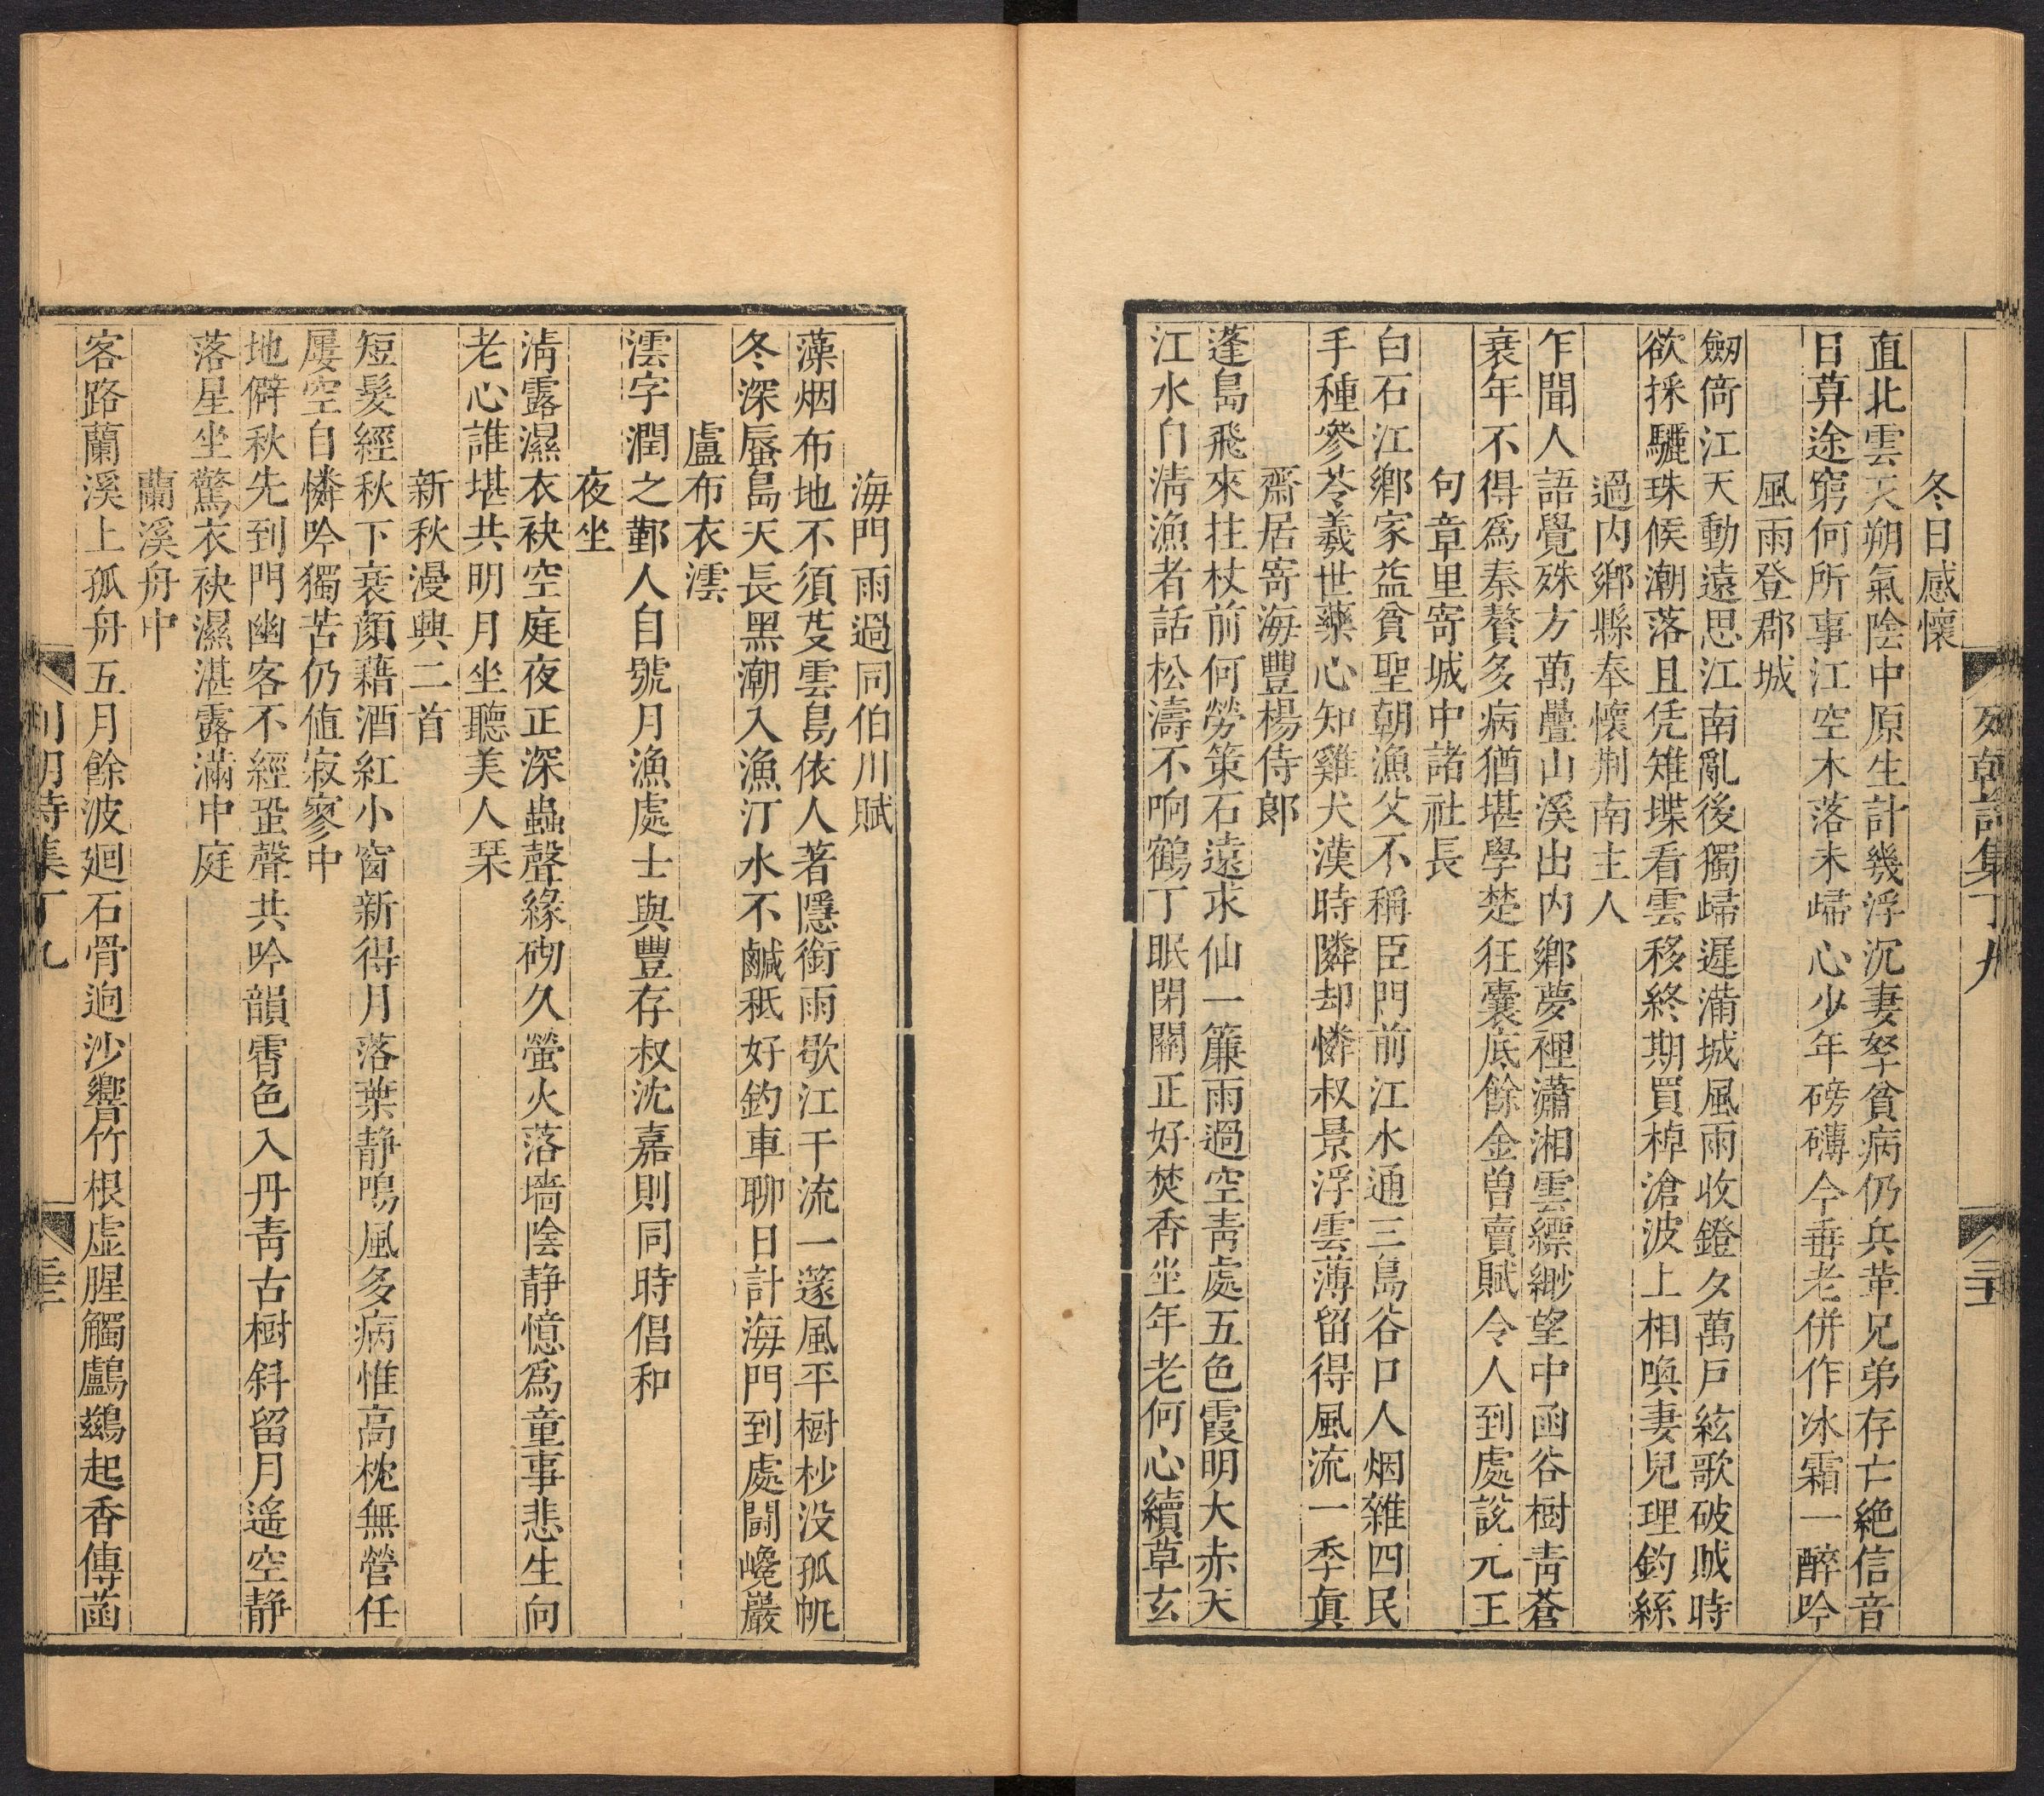 冬日感懷
直北雲天朔氣陰中原生計幾浮沉妻孥貧病仍兵革兄弟存亡絶信音
日莫途窮何所事江空木落未歸心少年磅礴今垂老併作冰霜一醉吟
風雨登郡城
劒倚江天動遠思江南亂後獨歸遲滿城風雨收鐙夕萬戸絃歌破賊時
欲採驪珠候潮落且凭雉堞看雲移終期買棹滄波上相喚妻兒理釣絲
過内鄉縣奉懷荆南主人
乍聞人語覺殊方萬疊山溪出内鄉夢裡瀟湘雲縹緲望中函谷樹靑蒼
衰年不得爲秦贅多病猶堪學楚狂囊底餘金曽賣賦令人到處説元王
句章里寄城中諸社長
白石江鄉家益貧聖朝漁父不稱臣門前江水通三島谷口人烟雜四民
手種參苓羲世藥心知雞犬漢時隣却憐叔景浮雲薄留得風流一季眞
齋居寄海豐楊侍郎
蓬島飛來拄杖前何勞策石遠求仙一簾雨過空靑處五色霞明大赤天
江水白淸漁者話松濤不响鶴丁眠閉關正好焚香坐年老何心續草玄
列朝詩集丁九
海門雨過同伯川賦
藻烟布地不須芟雲島依人著隱銜雨歇江干流一篷風平樹杪没孤帆
冬深蜃島天長黑潮入漁汀水不鹹秪好釣車聊日計海門到處鬪巉巖
盧布衣澐
澐字潤之鄞人自號月漁處士與豐存叔沈嘉則同時倡和
夜坐
淸露濕衣袂空庭夜正深蟲聲緣砌久螢火落墻陰静憶爲童事悲生向
老心誰堪共明月坐聽美人琹
新秋漫興二首
短髮經秋下衰顔藉酒紅小窗新得月落葉静鳴風多病惟高枕無營任
屢空自憐吟獨苦仍值寂寥中
地僻秋先到門幽客不經蛩聲共吟韻霄色入丹靑古樹斜留月遥空静
落星坐驚衣袂濕湛露滿中庭
蘭溪舟中
客路蘭溪上孤舟五月餘波廻石骨逈沙響竹根虚腥觸鸕鷀起香傳菡
列朝詩集丁九